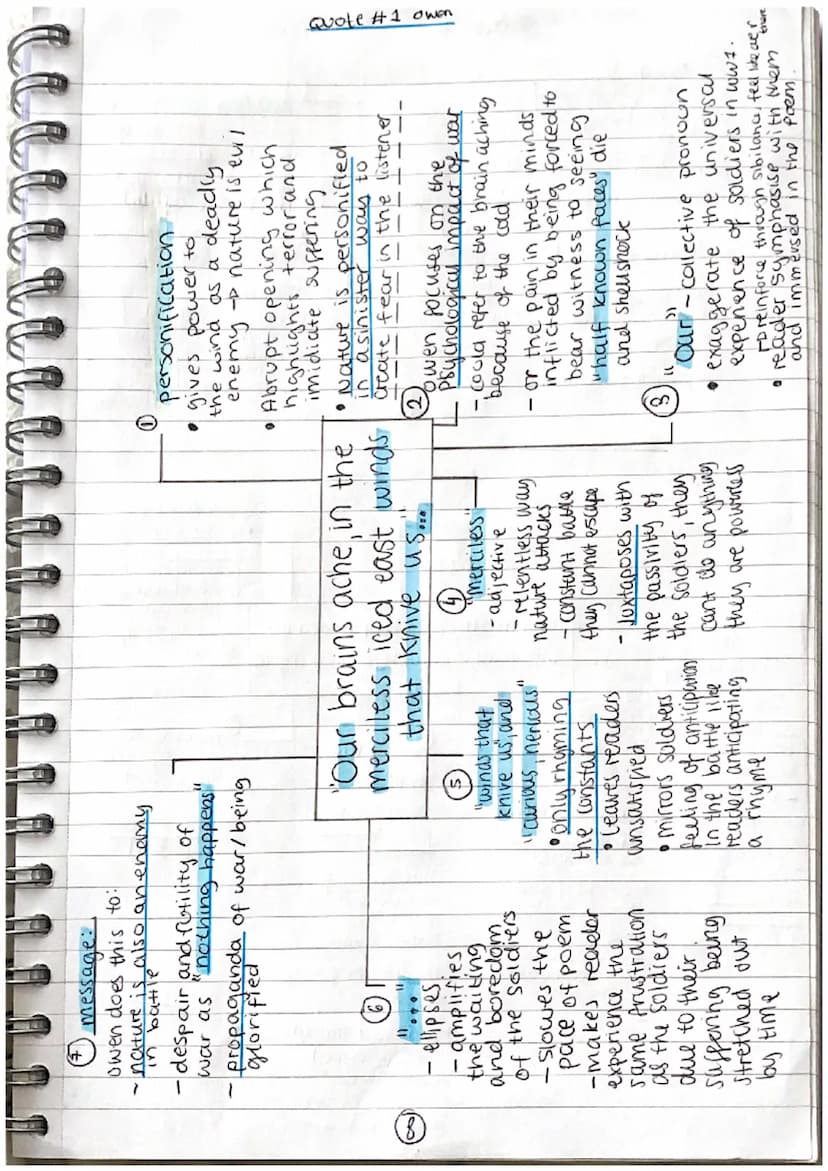 Quote #1 Owen
"Our brains ache, in the
merciless iced east winds
that knive us..."
① personification
• gives power to
the wind as a deadly
enemy → nature is evil
• Abrupt opening which
highlights terror and
imidiate suffering
• Nature is personified
in a sinister way to
create fear in the listener
② owen focuses on the
psychological impact of war
- could refer to the brain aching
because of the cold
- or the pain in their minds
inflicted by being forced to
bear witness to seeing
"half known faces" die
and shellshock
③ "Our" - collective pronoun
• exaggerate the universal
experience of soldiers in WW1.
↳ reinforce through sibilance, feel like they are there
• reader symphasise with them
and immersed in the poem.
④ "merciless"
- adjective
- relentless way
nature attacks
- constant battle
they cannot escape
- Juxtaposes with
the passivity of
the soldiers, they
cant do anything
they are powerless
⑤ "winds that
knive us" and
"curious, nervous"
• only rhyming
the constants
• leaves readers
unsatisfied
• mirrors soldiers
feeling of anticipation
in the battle like
readers anticipating
a rhyme
⑥ "...."
- ellipses
- amplifies
the waiting
and boredom
of the soldiers
- slows the
pace of poem
- makes reader
experience the
same frustration
as the soldiers
due to their
suffering being
stretched out
by time
⑦ message:
owen does this to:
- nature is also an enemy
in battle
- despair and futility of
war as "nothing happens"
- propaganda of war/being
glorified
⑧